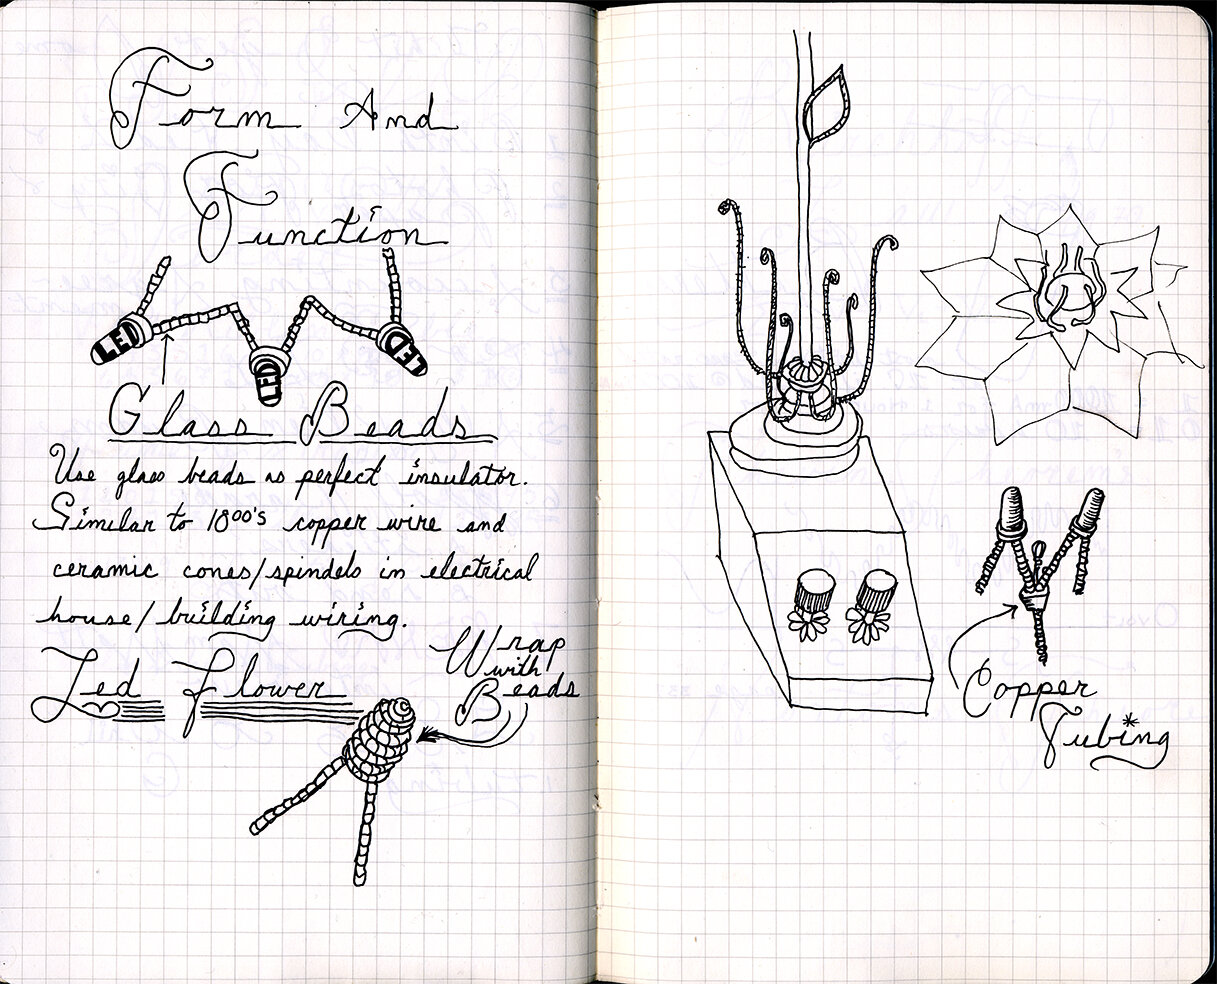 Form And
Function
LED
LED
LED
Glass Beads
Use glass beads as perfect insulator.
Similar to 1800's copper wire and
ceramic cones/spindels in electrical
house/building wiring.
Led Flower
Wrap
with
Beads
Copper
Tubing*